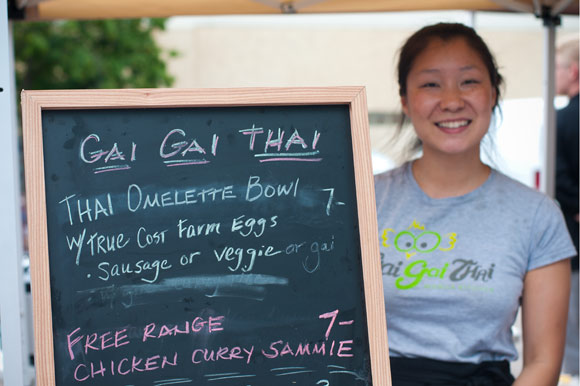 GAI GAI THAI
THAI OMELETTE BOWL 7-
W/ TRUE COST FARM EGGS
• SAUSAGE OR VEGGIE or gai
FREE RANGE 7-
CHICKEN CURRY SAMMIE
Gai Gai THAI